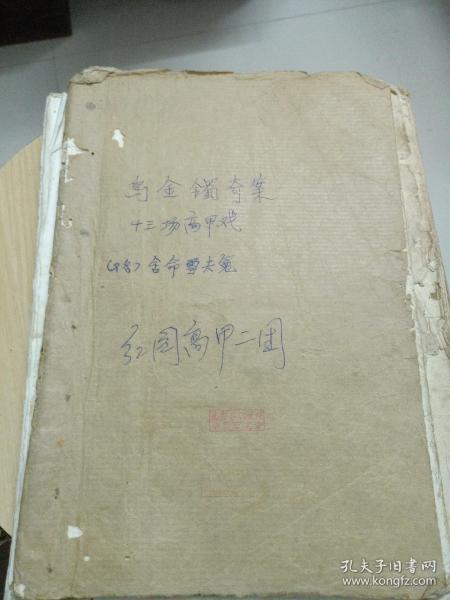 乌金镯奇案
十三场高甲戏
舍命雪夫冤
红园高甲二团
孔夫子旧书网
www.kongfz.com